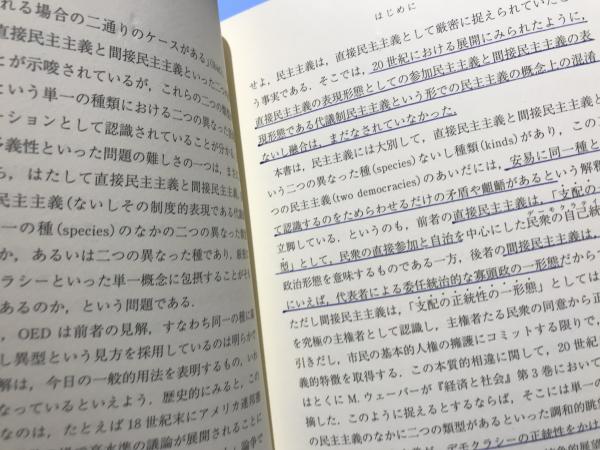 れる場合の二通りのケースがある」
直接民主主義と間接民主主義といった二つ
とが示唆されているが，これらの二つの
という単一の種類における二つの異なった
ーションとして認識されていることが分か
義性といった問題の難しさの一つは，また
ち，はたして直接民主主義と間接民主主
主義（ないしその制度的表現である代
一の種（species）のなかの二つの異なった
か，あるいは二つの異なった種であり，厳密に
ラシーといった単一概念に包摂することがそ
あるのか，という問題である．
，OED は前者の見解，すなわち同一の種に
し異型という見方を採用しているのは明らかで
解は，今日の一般的用法を表明するもの，い
なっているといえよう．歴史的にみると，こ
なのは，たとえば18世紀末にアメリカ連邦
高水準の議論が展開されることに
はじめに
せよ，民主主義は，直接民主主義として厳密に捉えられていた
う事実である．そこでは，20世紀における展開にみられたように，
直接民主主義の表現形態としての参加民主主義と間接民主主義の表
現形態である代議制民主主義という形での民主主義の概念上の混淆
ないし融合は，まだなされていなかった．
本書は，民主主義には大別して，直接民主主義と間接民主主義と
いう二つの異なった種（species）ないし種類（kinds）があり，この二
つの民主主義（two democracies）のあいだには，安易に同一種と
て認識するのをためらわせるだけの矛盾や齟齬があるという解釈
立脚している．というのも，前者の直接民主主義は，「支配の
型」として，民衆の直接参加と自治を中心にした民衆の自己統
デーモクラティア
政治形態を意味するものである一方，後者の間接民主主義は，
にいえば，代表者による委任統治的な寡頭政の一形態だから
ただし間接民主主義は，「支配の正統性の一形態」としては
を究極の主権者として認識し，主権者たる民衆の同意から正
引きだし，市民の基本的人権の擁護にコミットする限りで，
義的特徴を取得する．この本質的相違に関して，20世紀
はとくにM. ウェーバーが『経済と社会』第3巻において
摘した．このように捉えるとするならば，そこには単一の
主主義のなかに二つの類型があるといった調和的眺
デモクラシーの正統性をかけ